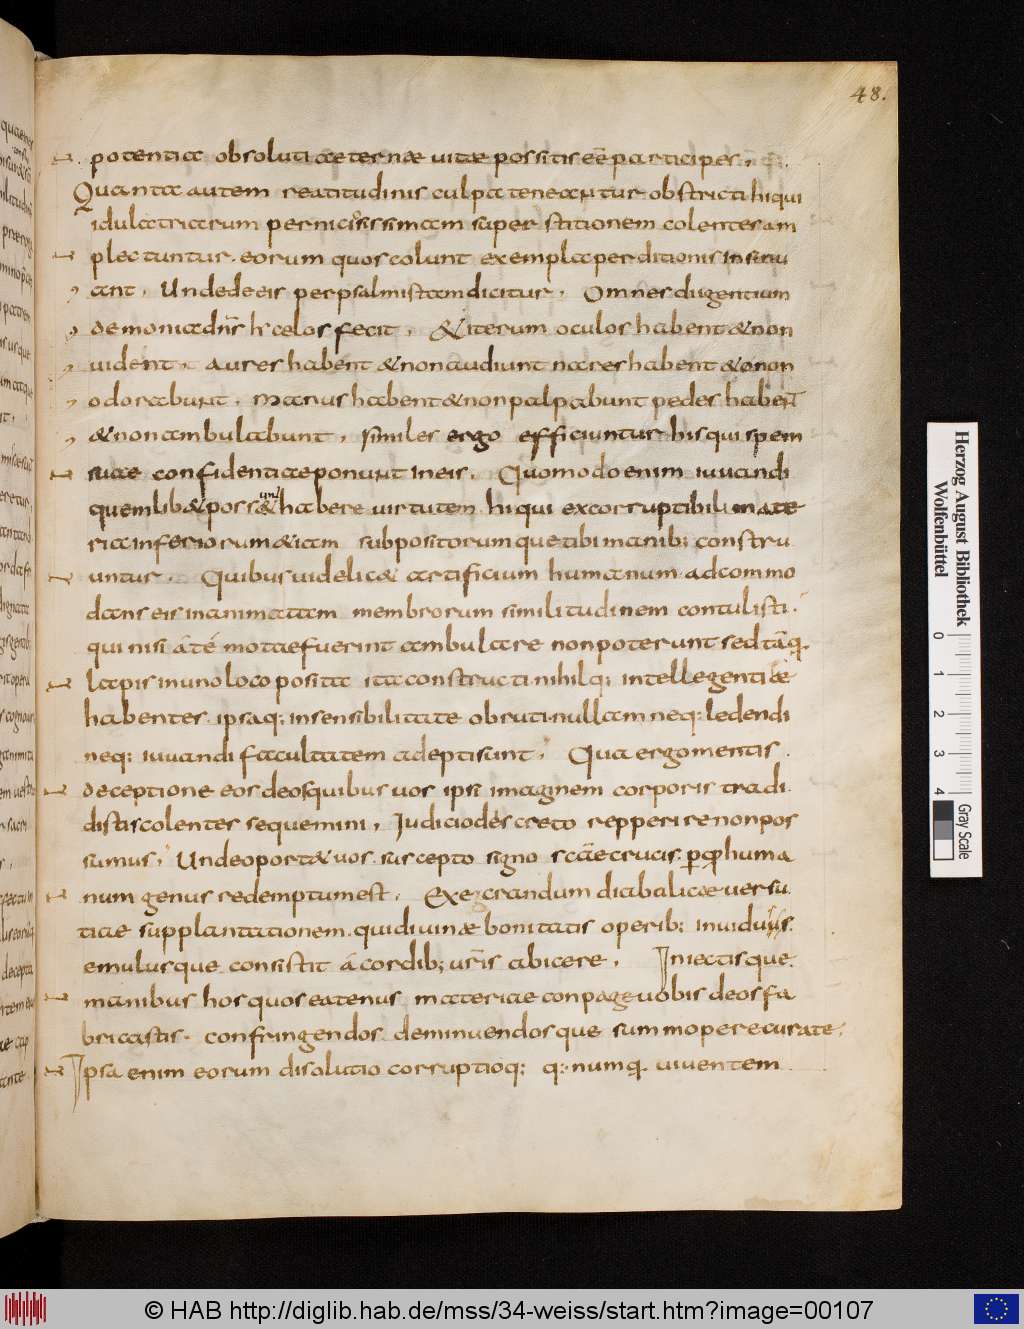 48.
potentia obsoluti aeternae uitae possitis eē participes,
Quanta autem reatitudinis culpa teneantur obstricti hi qui
idulatriarum perniciosissimam superstitionem colentes am
plectuntur. eorum quos colunt exempla perditionis insinu
ant. Unde de eis per psalmistam dicitur. Omnes dii gentium
demonia dn̄s h celos fecit. & iterum oculos habent & non
uident. aures habent & non audiunt nares habent & non
odorabunt. manus habent & non palpabunt pedes habent
& non ambulabunt. similes ergo efficiuntur his qui spem
suae confidentiae ponunt in eis. Quomodo enim iuuandi
quemlib& poss& habere uirtutem hi qui ex corruptibili mate
ria inferiorum & iam subpositorum que tibi manib; constru
untur. Quibus uidelic& artificium humanum adcommo
dans eis inanimatam membrorum similitudinem contulisti.
qui nisi a te motae fuerint ambulare non poterunt sed tāq.
lapis in uno loco posita ita constructi. nihilq; intellegentiae
habentes. ipsaq; insensibilitate obruti. nullam neq; ledendi
neq; iuuandi facultatem adepti sunt. Qua ergo mentis
deceptione eos deos quibus uos ipsi imaginem corporis tradi
distis colentes sequemini, Iudicio descreto repperire non pos
sumus. Unde oport& uos suscepto signo scāe crucis. p̄ q humā
num genus redemptum est. Execrandum diabalicae uersu
tiae supplantationem. qui diuinae bonitatis operib; inuidus
emulusque consistit a cordib; ur̄is abicere. Iniectisque
manibus hos quos eatenus materiae conpage uobis deos fa
bricastis. confringendos deminuendosque summopere curate.
Ipsa enim eorum disolutio corruptioq; q; numq uiuentem
Herzog August Bibliothek
Wolfenbüttel
0 1 2 3 4
Gray Scale
© HAB http://diglib.hab.de/mss/34-weiss/start.htm?image=00107